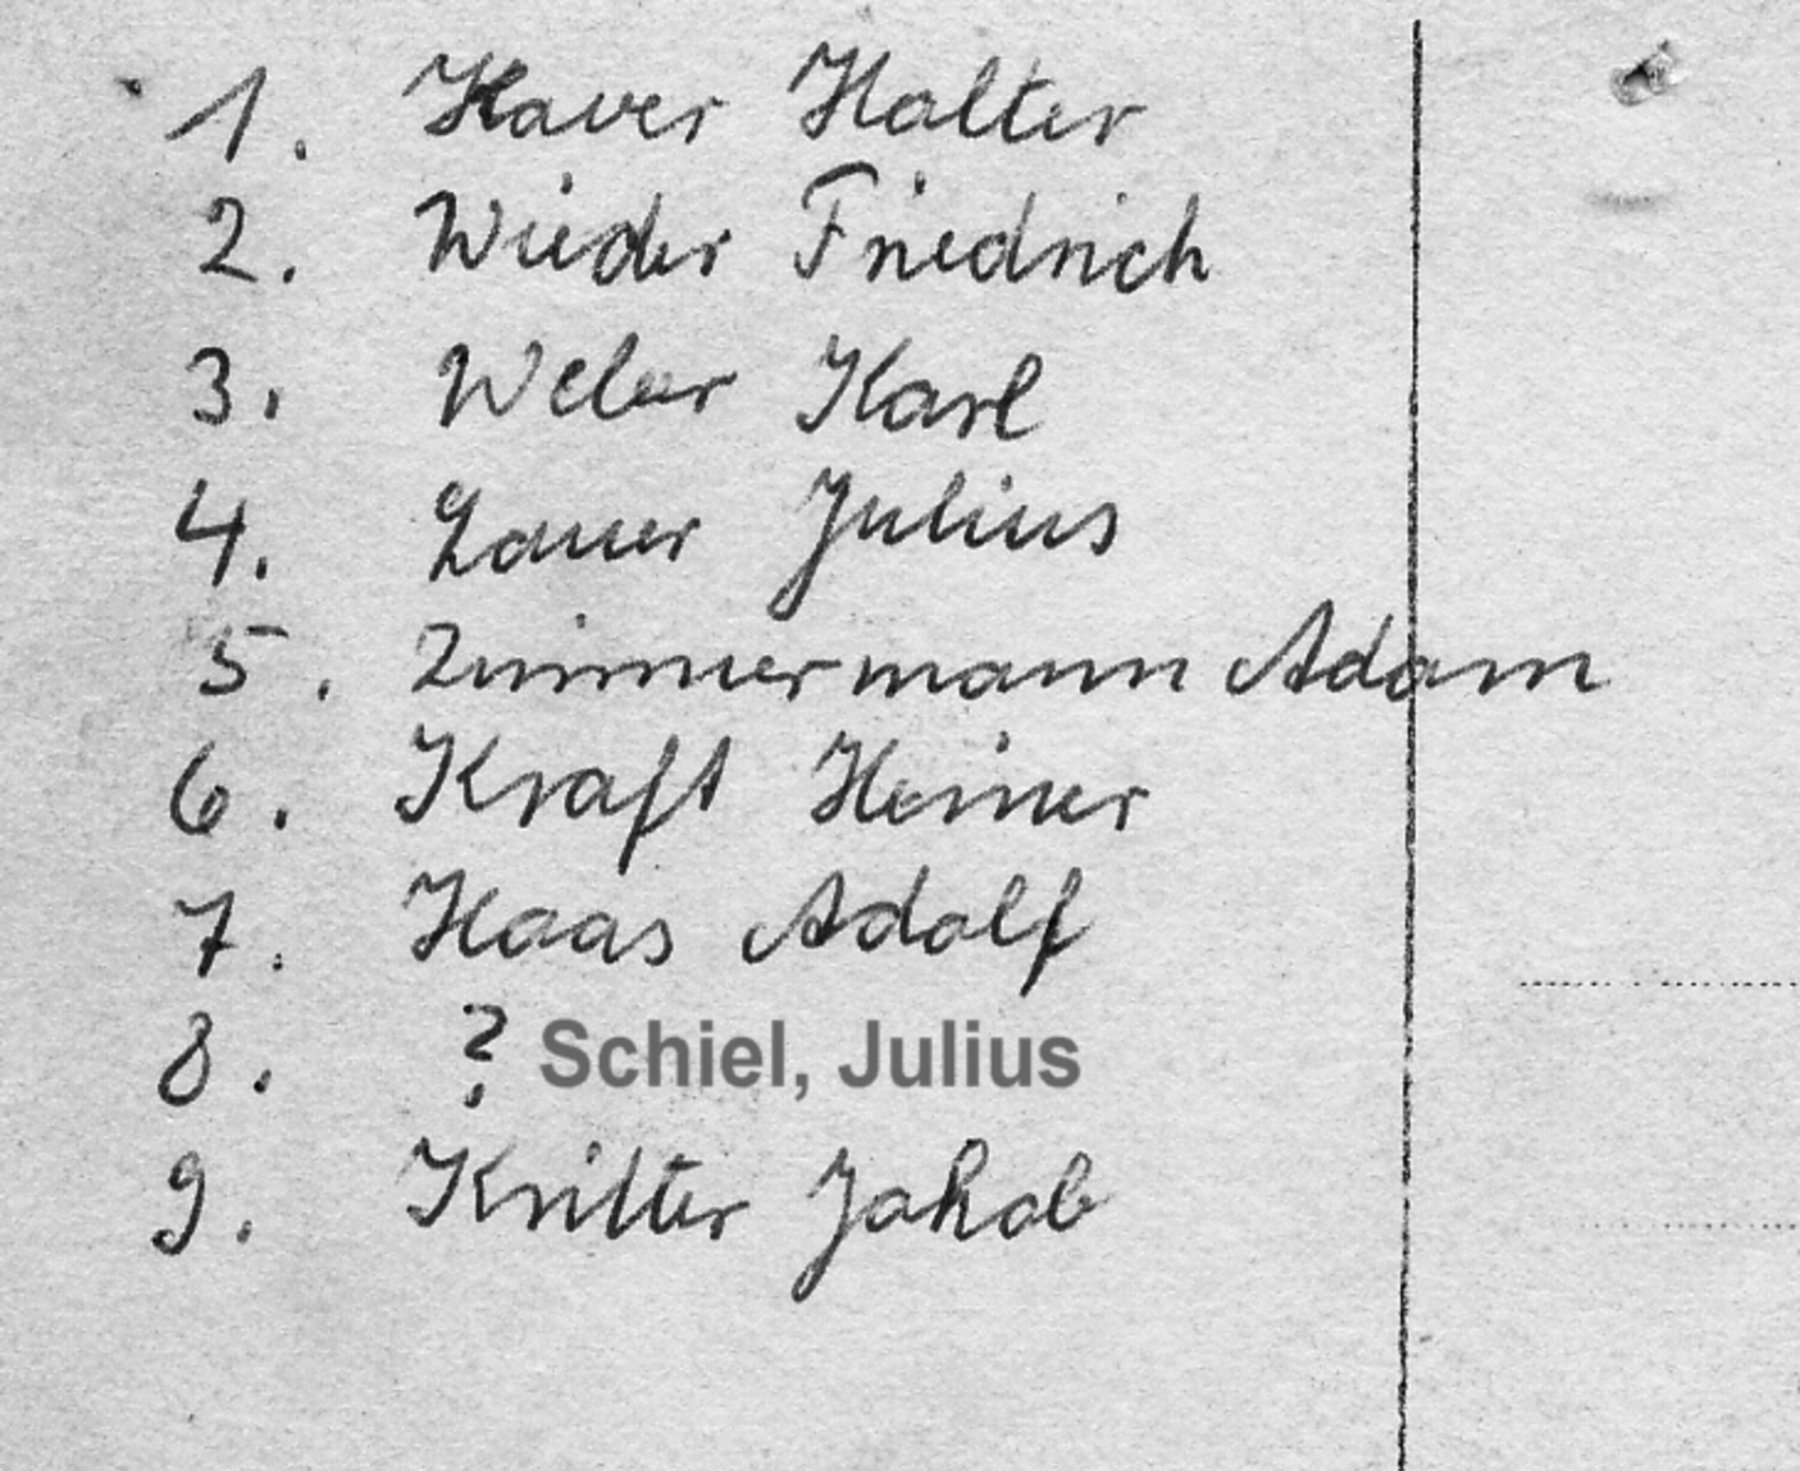 1. Xaver Halter
2. Wieder Friedrich
3. Weber Karl
4. Lauer Julius
5. Zimmermann Adam
6. Kraft Heiner
7. Haas Adolf
8. ? Schiel, Julius
9. Kritter Jakob